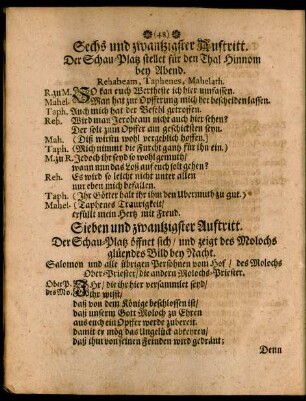 (48)
Sechs und zwantzigster Auftritt.
Der Schau-Platz stellet für den Thal Hinnom
bey Abend.
Rehabeam, Taphenes, Mahelath.
R. zu M. So kan euch Wertheste ich hier umfassen.
Mahel. Man hat zur Opferung mich her bescheiden lassen.
Taph. Auch mich hat der Befehl getroffen.
Reh. Wird man Jerobeam nicht auch hier sehen?
Der soll zum Opffer am geschicktsten seyn.
Mah. (Diß würtin wohl vergeblich hoffen.)
Taph. (Mich nimmt die Furcht gantz für ihn ein.)
M. zu R. Jedoch ihr seyd so wohlgemuth/
wann nun das Loß auf euch solt gehen?
Reh. Es wird so leicht nicht unter allen
nur eben mich befallen.
Taph. (Ihr Götter halt ihr ihm den Ubermuth zu gut.)
Mahel. (Taphenes Traurigkeit/
erfüllt mein Hertz mit Freud.
Sieben und zwantzigster Auftritt.
Der Schau-Platz öffnet sich/ und zeigt des Molochs
glüendes Bild bey Nacht.
Salomon und alle übrigen Persohnen vom Hof/ des Molochs
Ober-Priester/ die andern Molochs-Priester.
Ober P. Ihr/ die ihr hier versammlet seyd/
des Mo. Ihr wisst/
daß von dem Könige beschlossen ist/
daß unserm Gott Moloch zu Ehren
aus euch ein Opffer werde zubereit.
damit er mög das Ungelück abkehren/
daß ihm von seinen Feinden wird gedränt;
Denn